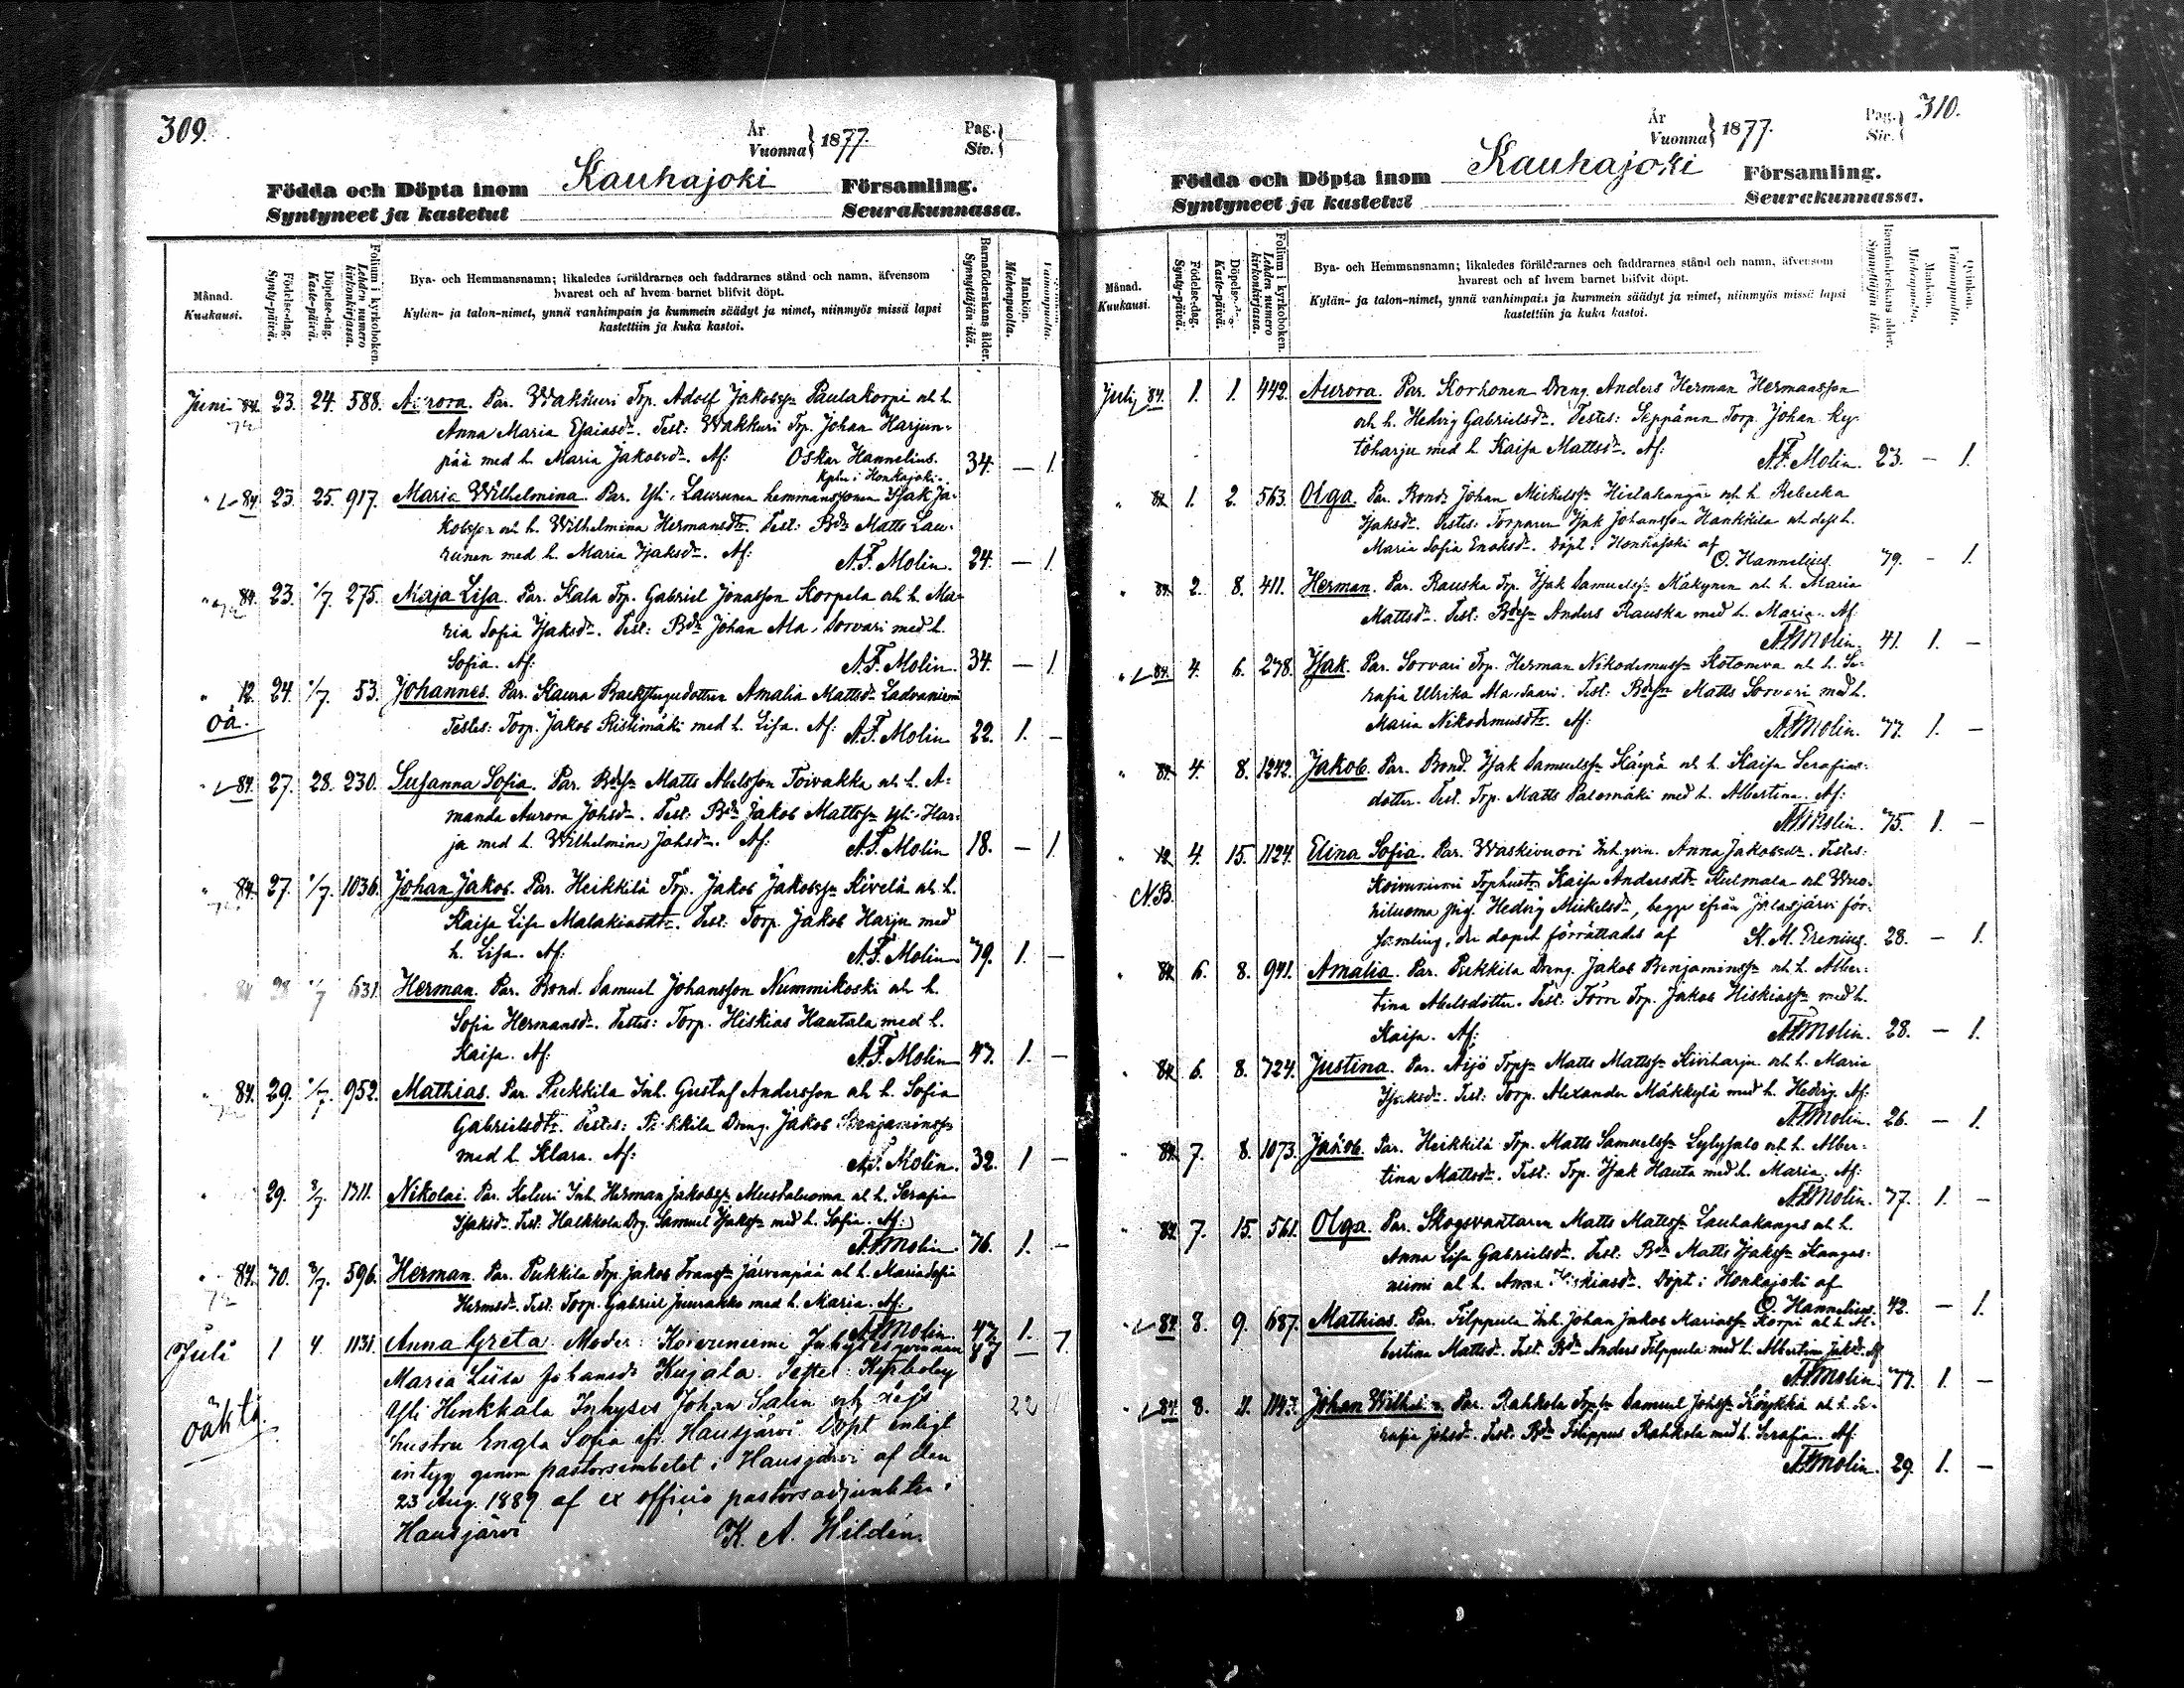 309.
År
Vuonna } 1877.
Pag.
Siv. {
Födda och Döpta inom Kauhajoki Församling.
Syntyneet ja kastetut Seurakunnassa.
Månad.
Kuukausi.
Födelse-dag.
Synty-päivä.
Döpelse-dag.
Kaste-päivä.
Folium i kyrkoboken.
Lehden numero kirkonkirjassa.
Bya- och Hemmansnamn; likaledes föräldrarnes och faddrarnes stånd och namn, äfvensom
hvarest och af hvem barnet blifvit döpt.
Kylän- ja talon-nimet, ynnä vanhimpain ja kummein säädyt ja nimet, niinmyös missä lapsi
kastettiin ja kuka kastoi.
Barnaföderskans ålder.
Synnyttäjän ikä.
Mankön.
Miehenpuolta.
Vaimonpuolta.
Juni 84. 23. 24. 588. Aurora. Par. Wakkuri Trp. Adolf Jakobssn Paulakorpi och h.
Anna Maria Esaiasdr. Test: Wakkuri Trp. Johan Harjun-
pää med h. Maria Jakobsdr. Af: Oskar Hannelius. 34. — 1.
Kpln i Honkajoki.
" 84. 23. 25. 917. Maria Wilhelmina. Par. Yli-Laurunen hemmanssonen Isak Ja-
kobsson och h. Wilhelmina Hermansdtr. Test: Bdn Matts Lau-
runen med h. Maria Isaksdr. Af: A.F. Molin. 24. — 1.
" 84. 23. 1/7. 275. Maja Lisa. Par. Kala Trp. Gabriel Jonasson Korpela och h. Ma-
ria Sofia Isaksdr. Test: Bdn Johan Ala-Sorvari med h.
Sofia. Af: A.F. Molin. 34. — 1.
" 12. 24. 1/7. 53. Johannes. Par. Kaura Backstugudottren Amalia Mattsdr Ladvaniemi
oä. Testes: Torp. Jakob Ristimäki med h. Lisa. Af: A.F. Molin 22. 1. —
" 84. 27. 28. 230. Susanna Sofia. Par. Bdssn Matts Abelsson Toivakka och h. A-
manda Aurora Johsdr. Test: Bdn Jakob Mattssn Yli-Har-
ja med h. Wilhelmina Johsdr. Af: A.F. Molin 18. — 1.
" 84. 27. 1/7. 1036. Johan Jakob. Par. Heikkilä Trp. Jakob Jakobssn Kivelä och h.
Kaisa Lisa Malakiasdtr. Test: Torp. Jakob Harju med
h. Lisa. Af: A.F. Molin 79. 1. —
84 28 1/7 631. Herman. Par. Bond. Samuel Johansson Nummikoski och h.
Sofia Hermansdr. Testes: Torp. Hiskias Hautala med h.
Kaisa. Af: A.F. Molin 47. 1. —
" 84. 29. 1/7. 952. Mathias. Par. Piekkila Inh. Gustaf Andersson och h. Sofia
Gabrielsdtr. Testes: Piekkila Dreng. Jakob Benjaminssn
med h. Klara. Af: A.F. Molin. 32. 1 —
" 29. 3/7. 1711. Nikolai. Par. Keturi Inh. Herman Jakobssn Mustaluoma och h. Serafia
Isaksdr. Test: Halkkola Drg. Samuel Isakssn med h. Sofia. Af:
A.F. Molin 76. 1. —
" 84. 70. 3/7. 596. Herman. Par. Piekkila Trp. Jakob Franssn Järvenpää och h. Maria Sofia
Hermsdr. Test: Torp. Gabriel Juurakko med h. Maria. Af:
A.F. Molin. 47. 1. —
Juli 1 4. 1131. Anna Greta. Moder: Koivuneemi Inhyses qvinnan
Maria Liisa Johansdr Kujala. Testes:
Yli Hinkkala Inhyses Johan Salin och dess
hustru Engla Sofia ifr. Hausjärvi. Döpt enligt
oäkta intyg genom pastorsembetet i Hausjärvi af den
23 Aug. 1889 af ex officio pastorsadjunkten i
Hausjärvi K. A. Hildén.
22
310.
År
Vuonna } 1877.
Pag.
Siv. {
Födda och Döpta inom Kauhajoki Församling.
Syntyneet ja kastetut Seurakunnassa.
Månad.
Kuukausi.
Födelse-dag.
Synty-päivä.
Döpelse-dag.
Kaste-päivä.
Folium i kyrkoboken.
Lehden numero kirkonkirjassa.
Bya- och Hemmansnamn; likaledes föräldrarnes och faddrarnes stånd och namn, äfvensom
hvarest och af hvem barnet blifvit döpt.
Kylän- ja talon-nimet, ynnä vanhimpain ja kummein säädyt ja nimet, niinmyös missä lapsi
kastettiin ja kuka kastoi.
Barnaföderskans ålder.
Synnyttäjän ikä.
Mankön.
Miehenpuolta.
Qvinkön.
Vaimonpuolta.
July 84. 1. 1. 442. Aurora. Par. Korhonen Dreng. Anders Herman Hermansson
och h. Hedvig Gabrielsdr. Testes: Seppänen Torp. Johan Ky-
töharju med h. Kaisa Mattsdr. Af: A.F. Molin. 23. — 1.
" 84. 1. 2. 563. Olga. Par. Bondn Johan Mickelssn Hietakangas och h. Rebecka
Isaksdr. Testes: Torparen Isak Johansson Hankkila och dess h.
Maria Sofia Enoksdr. Döpt i Honkajoki af
O. Hannelius. 79. — 1.
" 84. 2. 8. 411. Herman. Par. Rauska Trp. Isak Samuelssn Mäkynen och h. Maria
Mattsdr. Test: Bdssn Anders Rauska med h. Maria. Af
A.F. Molin. 41. 1. —
" 84. 4. 6. 278. Isak. Par. Sorvari Trp. Herman Nikodemussn Kotoneva och h. Se-
rafia Ulrika Ala-Saari. Test: Bdssn Matts Sorvari med h.
Maria Nikodemusdtr. Af: A.F. Molin. 77. 1. —
" 84. 4. 8. 1242. Jakob. Par. Bond. Isak Samuelssn Käyrä och h. Kaisa Serafias-
dotter. Test. Trp. Matts Palomäki med h. Albertina. Af:
A.F. Molin. 75. 1. —
" 12. 4. 15. 1124. Elina Sofia. Par. Waskivuori Inh.qvin. Anna Jakobsdr. Testes:
NB. Koivuniemi Trphustr Kaisa Andersdtr Kulmala och Wuo-
riluoma pig. Hedvig Mickelsdr, begge ifrån Jalasjärvi för-
samling, der dopet förrättades af K. M. Erenius. 28. — 1.
" 84. 6. 8. 941. Amalia. Par. Piekkila Dreng. Jakob Benjaminssn och h. Alber-
tina Abelsdotter. Test: Törn Trp. Jakob Hiskiassn med h.
Kaisa. Af: A.F. Molin. 28. — 1.
" 84. 6. 8. 724. Justina. Par. Äijö Trpssn Matts Mattssn Kiviharju och h. Maria
Isaksdr. Test: Torp. Alexander Mäkkylä med h. Hedvig. Af:
A.F. Molin. 26. — 1.
" 84. 7. 8. 1073. Jakob. Par. Heikkilä Trp. Matts Samuelssn Lylysalo och h. Alber-
tina Mattsdr. Test: Trp. Isak Hauta med h. Maria. Af:
A.F. Molin. 77. 1. —
" 84. 7. 15. 561. Olga. Par. Skogsvaktaren Matts Mattssn Lauhakangas och h.
Anna Lisa Gabrielsdr. Test: Bdn Matts Isakssn Kangas-
niemi och h. Anna Hiskiasdr. Döpt i Honkajoki af
O. Hannelius. 42. — 1.
" 84. 8. 9. 687. Mathias. Par. Filppula Inh. Johan Jakob Mariassn Korpi och h. Al-
bertina Mattsdr. Test. Bdn Anders Filppula med h. Albertina Jaksdr. Af
A.F. Molin. 77. 1. —
" 84. 8. 11. 1147. Johan Wilhelm. Par. Rahkola Trpssn Samuel Johssn Köykkä och h. Se-
rafia Johsdr. Test: Bdn Filippus Rahkola med h. Serafia. Af
A.F. Molin. 29. 1. —